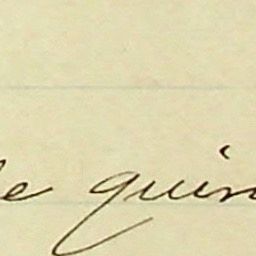 le quin